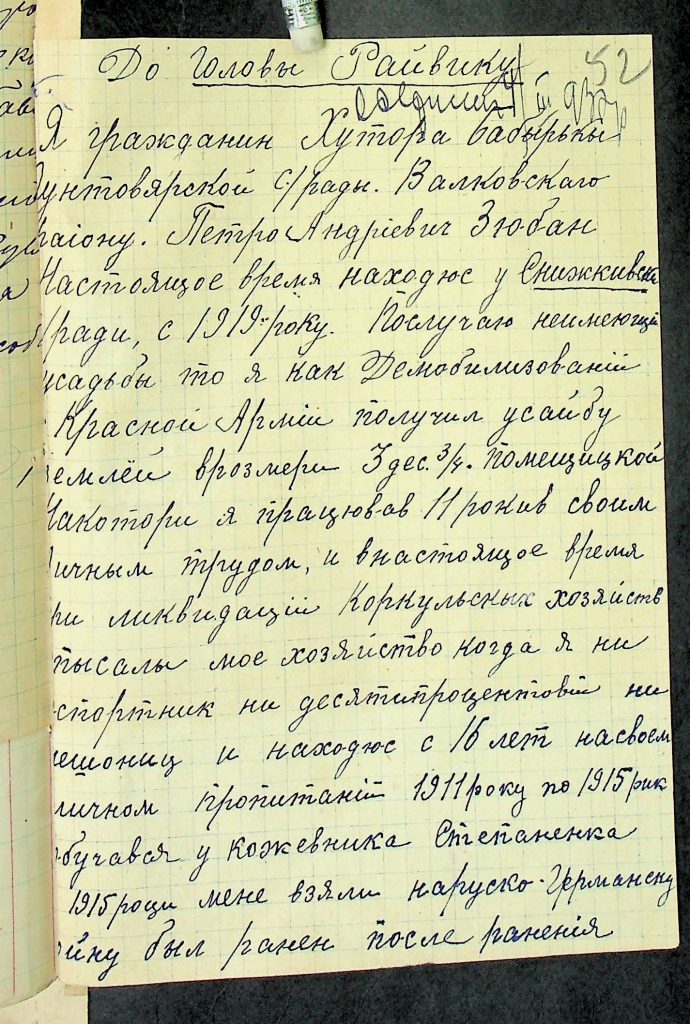 До Головы Райвику
52
Я гражданин Хутора бабырькы
Сунтовярской с/рады. Валковскаго
раіону. Петро Андріевич Зюбан
Настоящое время находюс у Снижкивски
ради, с 1919-року. Послучаю неимеющи
усадьбы то я как Демобилизованій
Красной Арміи получил усайбу
землёй врозмери 3 дес. 3/4. помещицкой
Накотори я працював 11 рокив своим
личным трудом, и внастоящое время
при ликвидаціи Коркульских хозяйств
пысалы мое хозяйство когда я ни
спортник ни десятипроцентовій ни
и находюс с 16 лет насвоем
личном пропитаній 1911 року по 1915 рик
обучався у кожевника Степаненка
1915 роци мене взяли наруско-Германску
війну был ранен после раненія